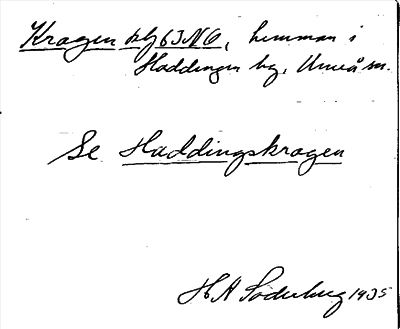 Kragen klg 63NO, hemman i
Haddingen by, Umeå sn.
Se Haddingskragen
H A Söderberg 1935